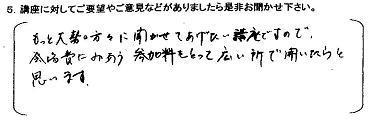 5. 講座に対してご要望やご意見などがありましたら是非お聞かせ下さい。
もっと大勢の方々に聞かせてあげたい講座ですので、
会場費にみあう参加料をとって広い所で開いたらと
思います。